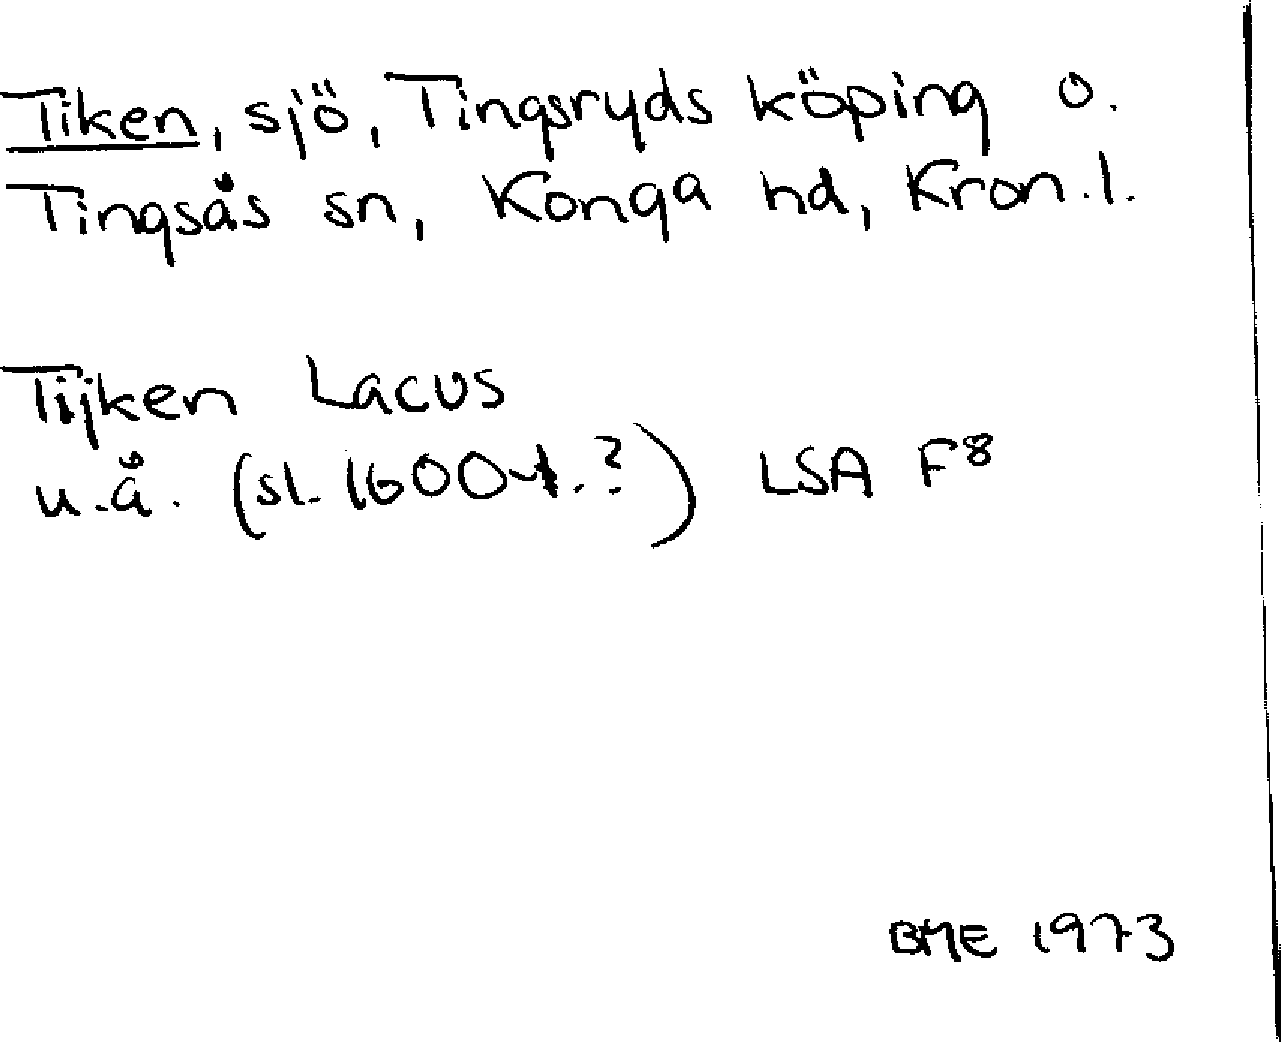 Tiken, sjö, Tingsryds köping o.
Tingsås sn, Konga hd, Kron.l.
Tijken Lacus
u.å. (sl. 1600-t.?) LSA F8
BME 1973